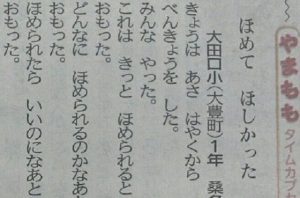 やまもも
タイムカプセ
ほめて ほしかった
大田口小(大豊町)1年 桑名
きょうは あさ はやくから
べんきょうを した。
みんな やった。
これは きっと ほめられると
おもった。
どんなに ほめられるのかなあと
おもった。
ほめられたら いいのになあと
おもった。